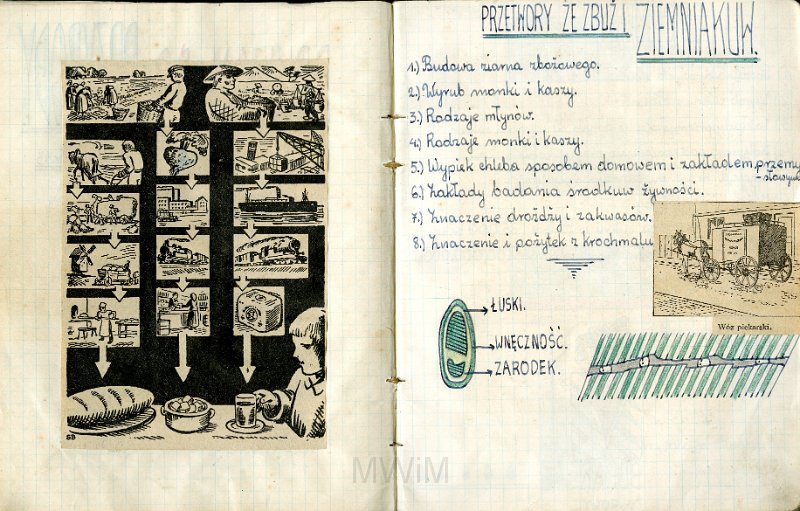 PRZETWORY ŻE ZBUŻ I ZIEMNIAKUW.
1.) Budowa ziarna zbożowego.
2.) Wyrub monki i kaszy.
3.) Rodzaje młynów.
4.) Rodzaje monki i kaszy.
5.) Wypiek chleba sposobem domowem i zakładem przemy
-słowym
6.) Zakłady badania środkuw żywności.
7.) Znaczenie drożdży i zakwasów.
8.) Znaczenie i pożytek z krochmalu
Wóz piekarski.
ŁUSKI.
WNĘCZNOŚĆ.
ZARODEK.
SB
MWiM